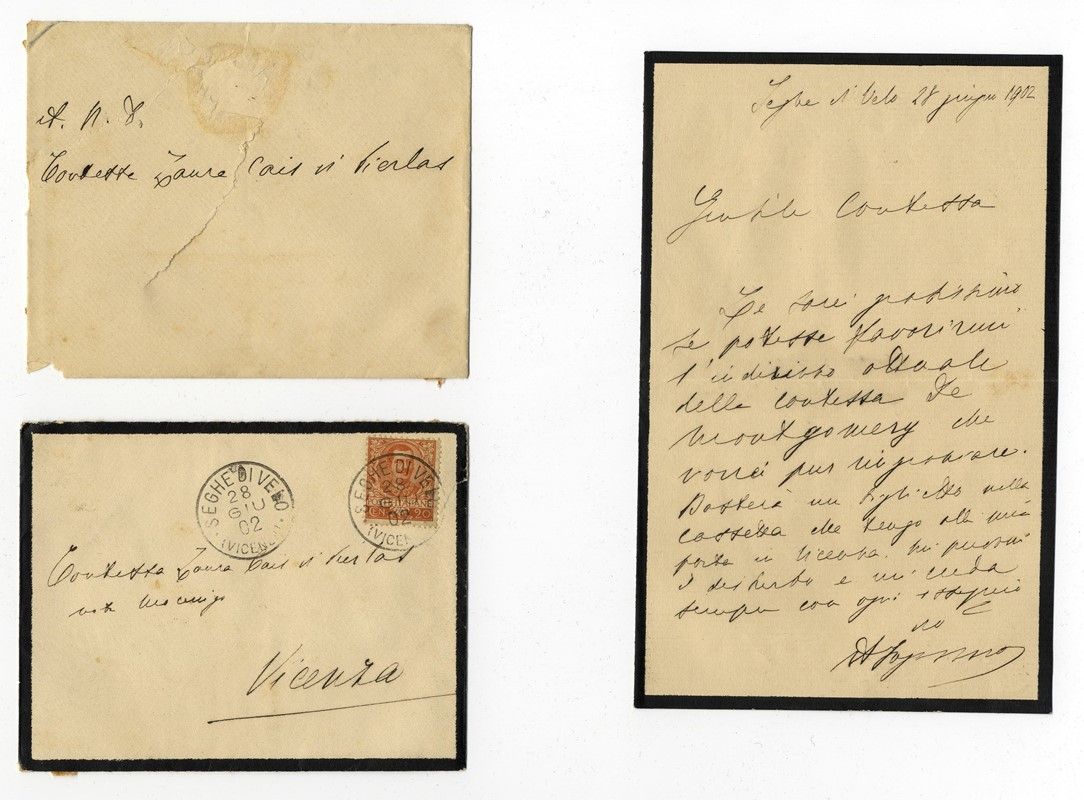 A. N. D.
Contessa Laura Cais di Pierlas
SEGHE DI VELO
28
GIU
02
(VICENZA)
SEGHE DI VELO
28
02
(VICEN
20
Contessa Laura Cais di Pierlas
nata Mocenigo
Vicenza
Seghe di Velo 28 giugno 1902
Gentile Contessa
Le sarei gratissimo
se potesse favorirmi
l'indirizzo attuale
della Contessa De
Montgomery che
vorrei pur ringraziare.
Basterà un biglietto nella
cassetta che tengo alla mia
porta in Vicenza. Mi perdoni
il disturbo e mi creda
sempre con ogni ossequio
AFogazzaro